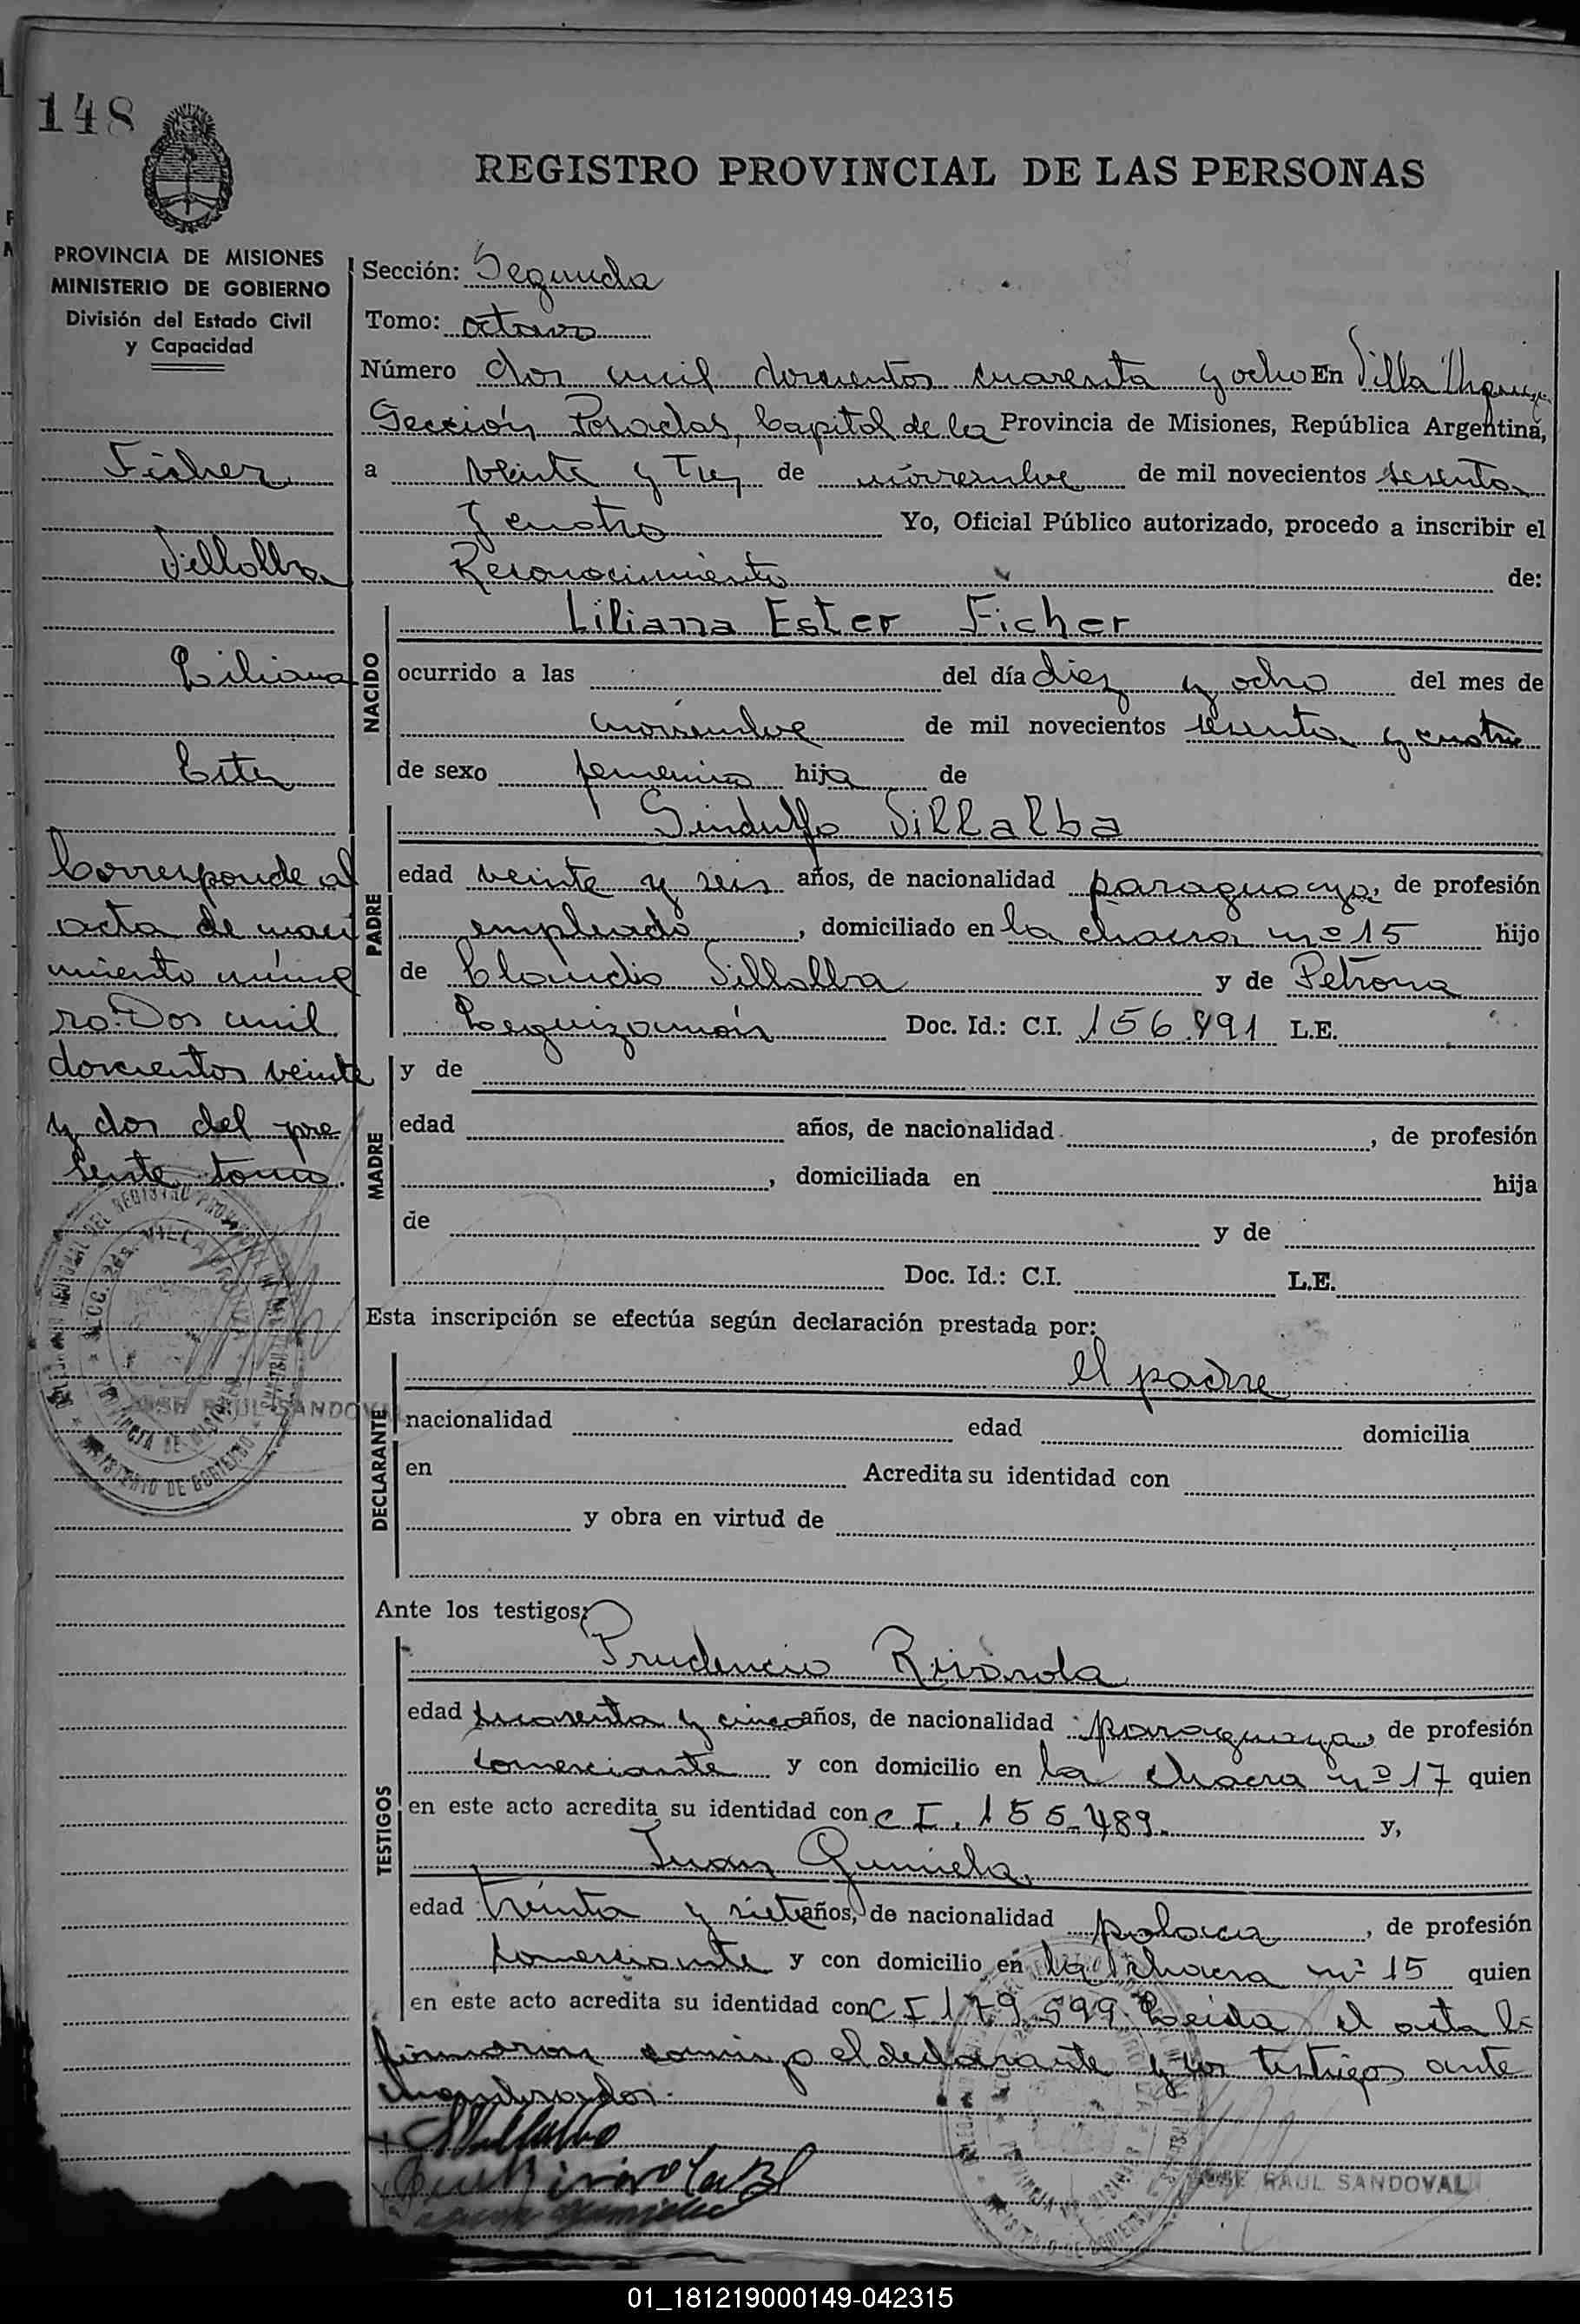 148
REGISTRO PROVINCIAL DE LAS PERSONAS
PROVINCIA DE MISIONES
MINISTERIO DE GOBIERNO
División del Estado Civil
y Capacidad
Ficher
Villalba
Liliana
Ester
Corresponde al
acta de naci
miento núme
ro. Dos mil
doscientos veinte
y dos del pre
sente tomo.
JOSE RAUL SANDOVAL
Sección: Segunda
Tomo: octavo
Número dos mil doscientos cuarenta y ocho En Villa
Sección Posadas, Capital de la Provincia de Misiones, República Argentina,
a veinte y Tres de noviembre de mil novecientos sesenta
y cuatro Yo, Oficial Público autorizado, procedo a inscribir el
Reconocimiento de:
NACIDO
Liliana Ester Ficher
ocurrido a las del día diez y ocho del mes de
noviembre de mil novecientos sesenta y cuatro
de sexo femenino hija de
PADRE
Sindulfo Villalba
edad veinte y seis años, de nacionalidad paraguaya, de profesión
empleado, domiciliado en la chacra nº 15 hijo
de Claudio Villalba y de Petrona
Leguizamón Doc. Id.: C.I. 156.491 L.E.
MADRE
y de
edad años, de nacionalidad , de profesión
, domiciliada en hija
de y de
Doc. Id.: C.I. L.E.
Esta inscripción se efectúa según declaración prestada por:
DECLARANTE
el padre
nacionalidad edad domicilia
en Acredita su identidad con
y obra en virtud de
Ante los testigos:
TESTIGOS
Prudencio Rivarola
edad cuarenta y cinco años, de nacionalidad paraguaya, de profesión
comerciante y con domicilio en la chacra nº 17 quien
en este acto acredita su identidad con C I. 155.489. y,
Juan Gumiela,
edad treinta y siete años, de nacionalidad polaca, de profesión
comerciante y con domicilio en la chacra nº 15 quien
en este acto acredita su identidad con C I 179.599. Leida el acta la
firmaron conmigo el declarante y los testigos ante
nombrados.
JOSE RAUL SANDOVAL
01_181219000149-042315